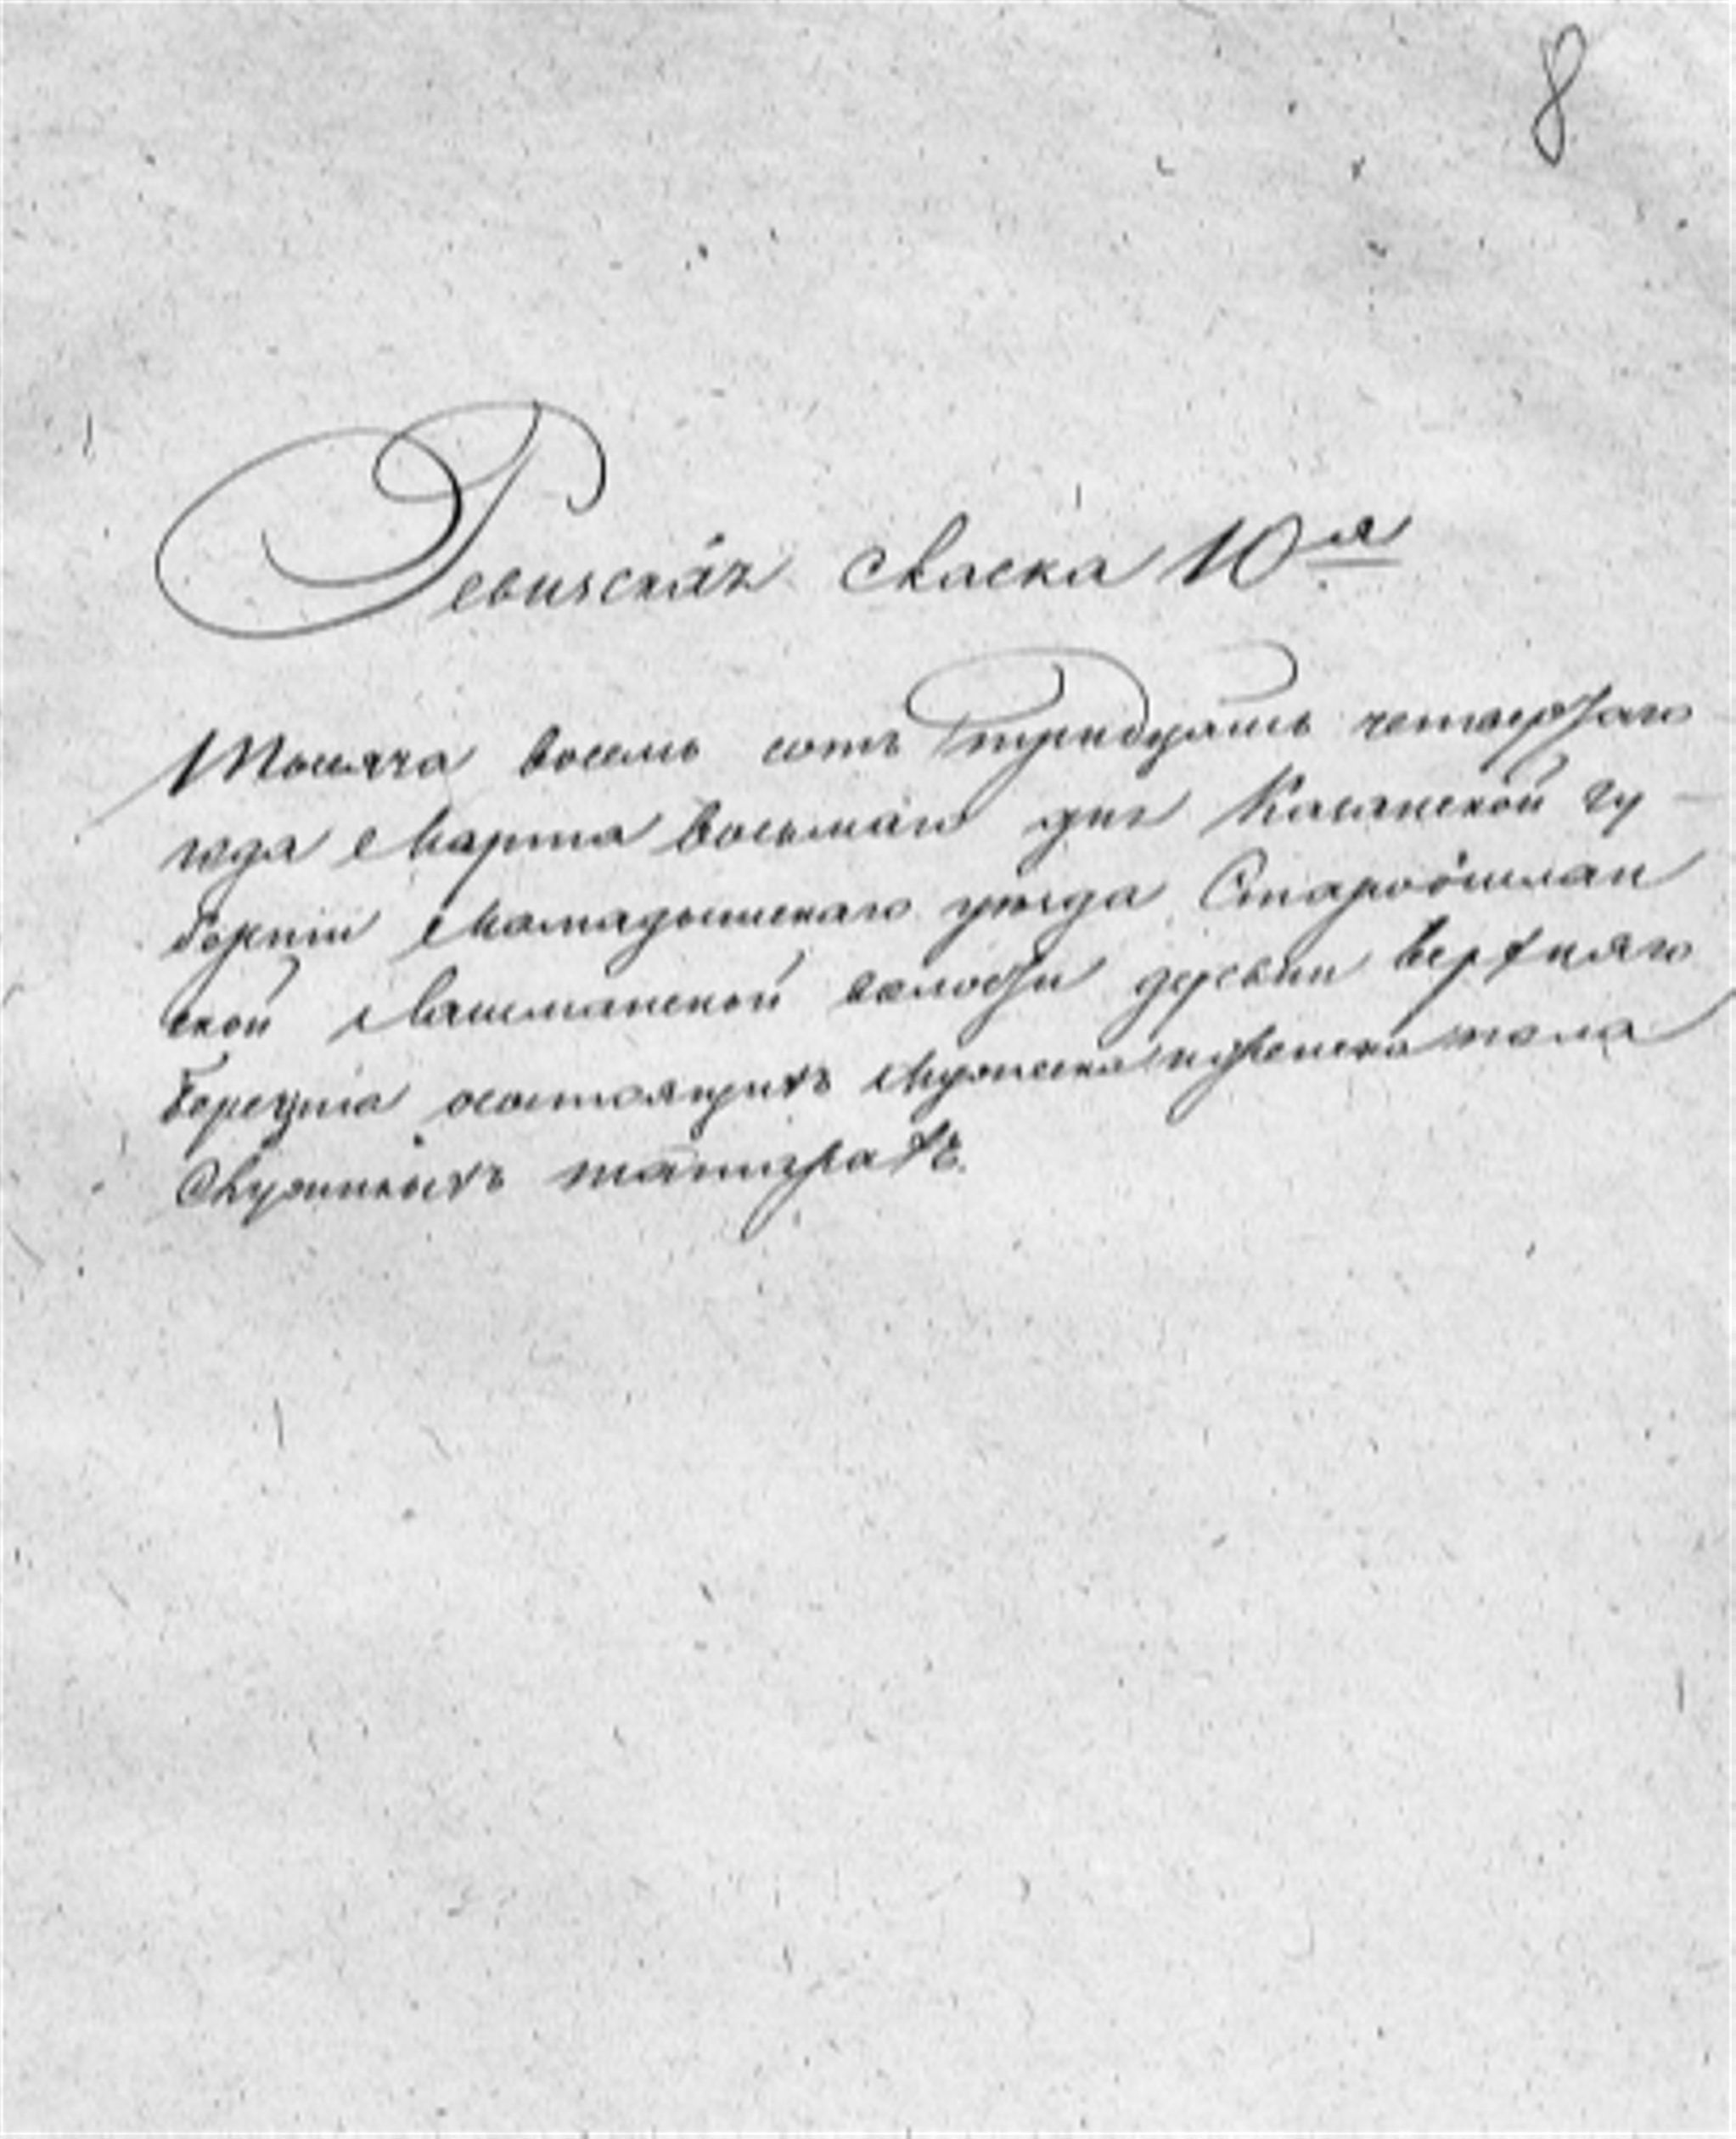 8
Ревизская скаска 10<sup>я</sup>
Тысяча восемь сотъ тридцать четвертаго
года Марта восьмаго дня Казанской гу
берніи Мамадышскаго уезда Староошлан
ской Лашманской волости деревни верхняго
Береския осостоящихъ Мужеска и женска пола
Служилыхъ татарахъ.